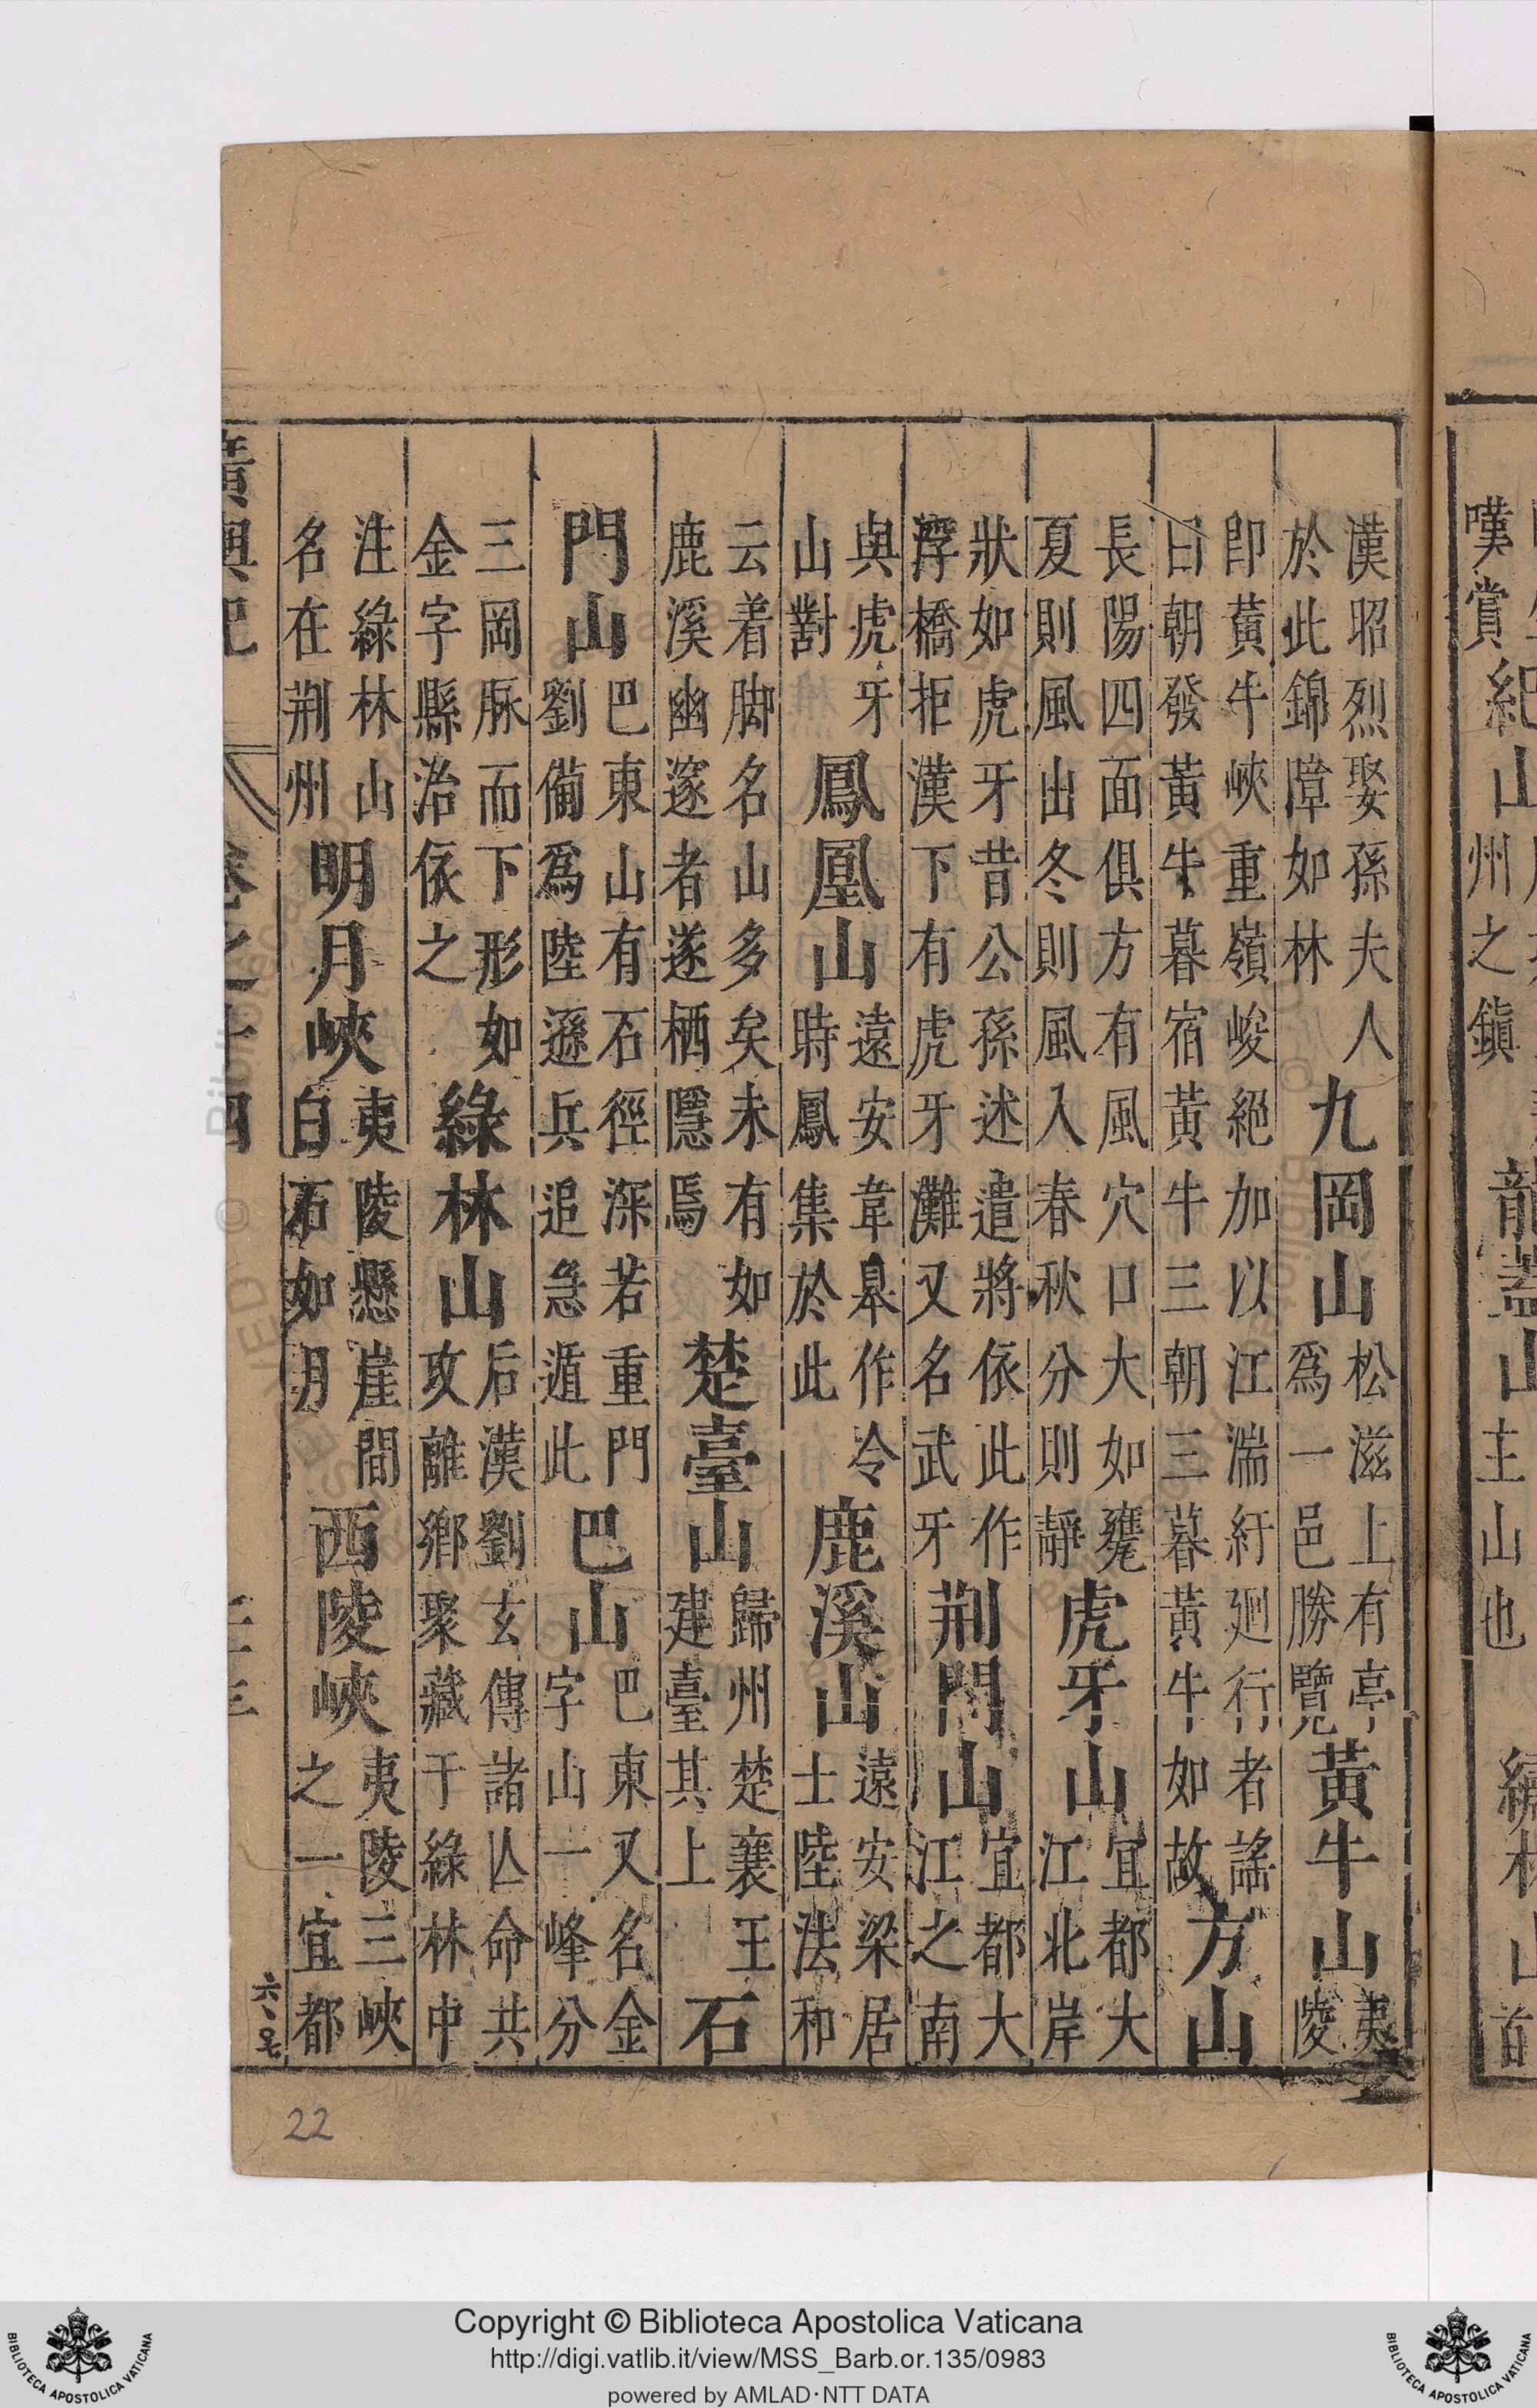 嘆賞
紀山
州之鎮
主山也
漢昭烈娶孫夫人
於此錦障如林
九岡山
松滋上有亭
爲一邑勝覽
黃牛山
夷
陵
即黃牛峽重嶺峻絕加以江湍紆廻行者謠
曰朝發黃牛暮宿黃牛三朝三暮黃牛如故
方山
長陽四面俱方有風穴口大如甕
夏則風出冬則風入春秋分則靜
虎牙山
宜都大
江北岸
狀如虎牙昔公孫述遣將依此作
浮橋拒漢下有虎牙灘又名武牙
荆門山
宜都大
江之南
與虎牙
山對
鳳凰山
遠安韋臯作令
時鳳集於此
鹿溪山
遠安梁居
士陸法和
云着脚名山多矣未有如
鹿溪幽邃者遂栖隱焉
楚臺山
歸州楚襄王
建臺其上
石
門山
巴東山有石徑深若重門
劉備爲陸遜兵追急遁此
巴山
巴東又名金
字山一峰分
三岡脉而下形如
金字縣治依之
綠林山
后漢劉玄傳諸亾命共
攻離鄉聚藏于綠林中
注綠林山
名在荆州
明月峽
夷陵懸崖間
白石如月
西陵峽
夷陵三峽
之一宜都
廣輿記
卷之十四
22
Copyright © Biblioteca Apostolica Vaticana
http://digi.vatlib.it/view/MSS_Barb.or.135/0983
powered by AMLAD·NTT DATA